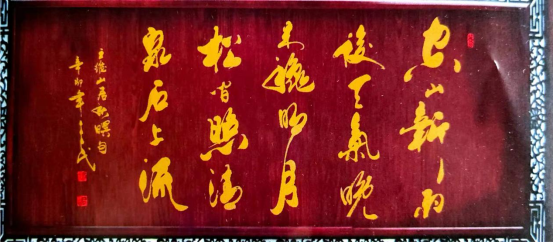 空山新雨
後天氣晚
来秋明月
松间照清
泉石上流
王维山居秋暝句
辛卯年